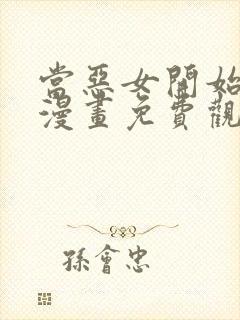 當惡女開始
漫畫免費觀
孫會忠